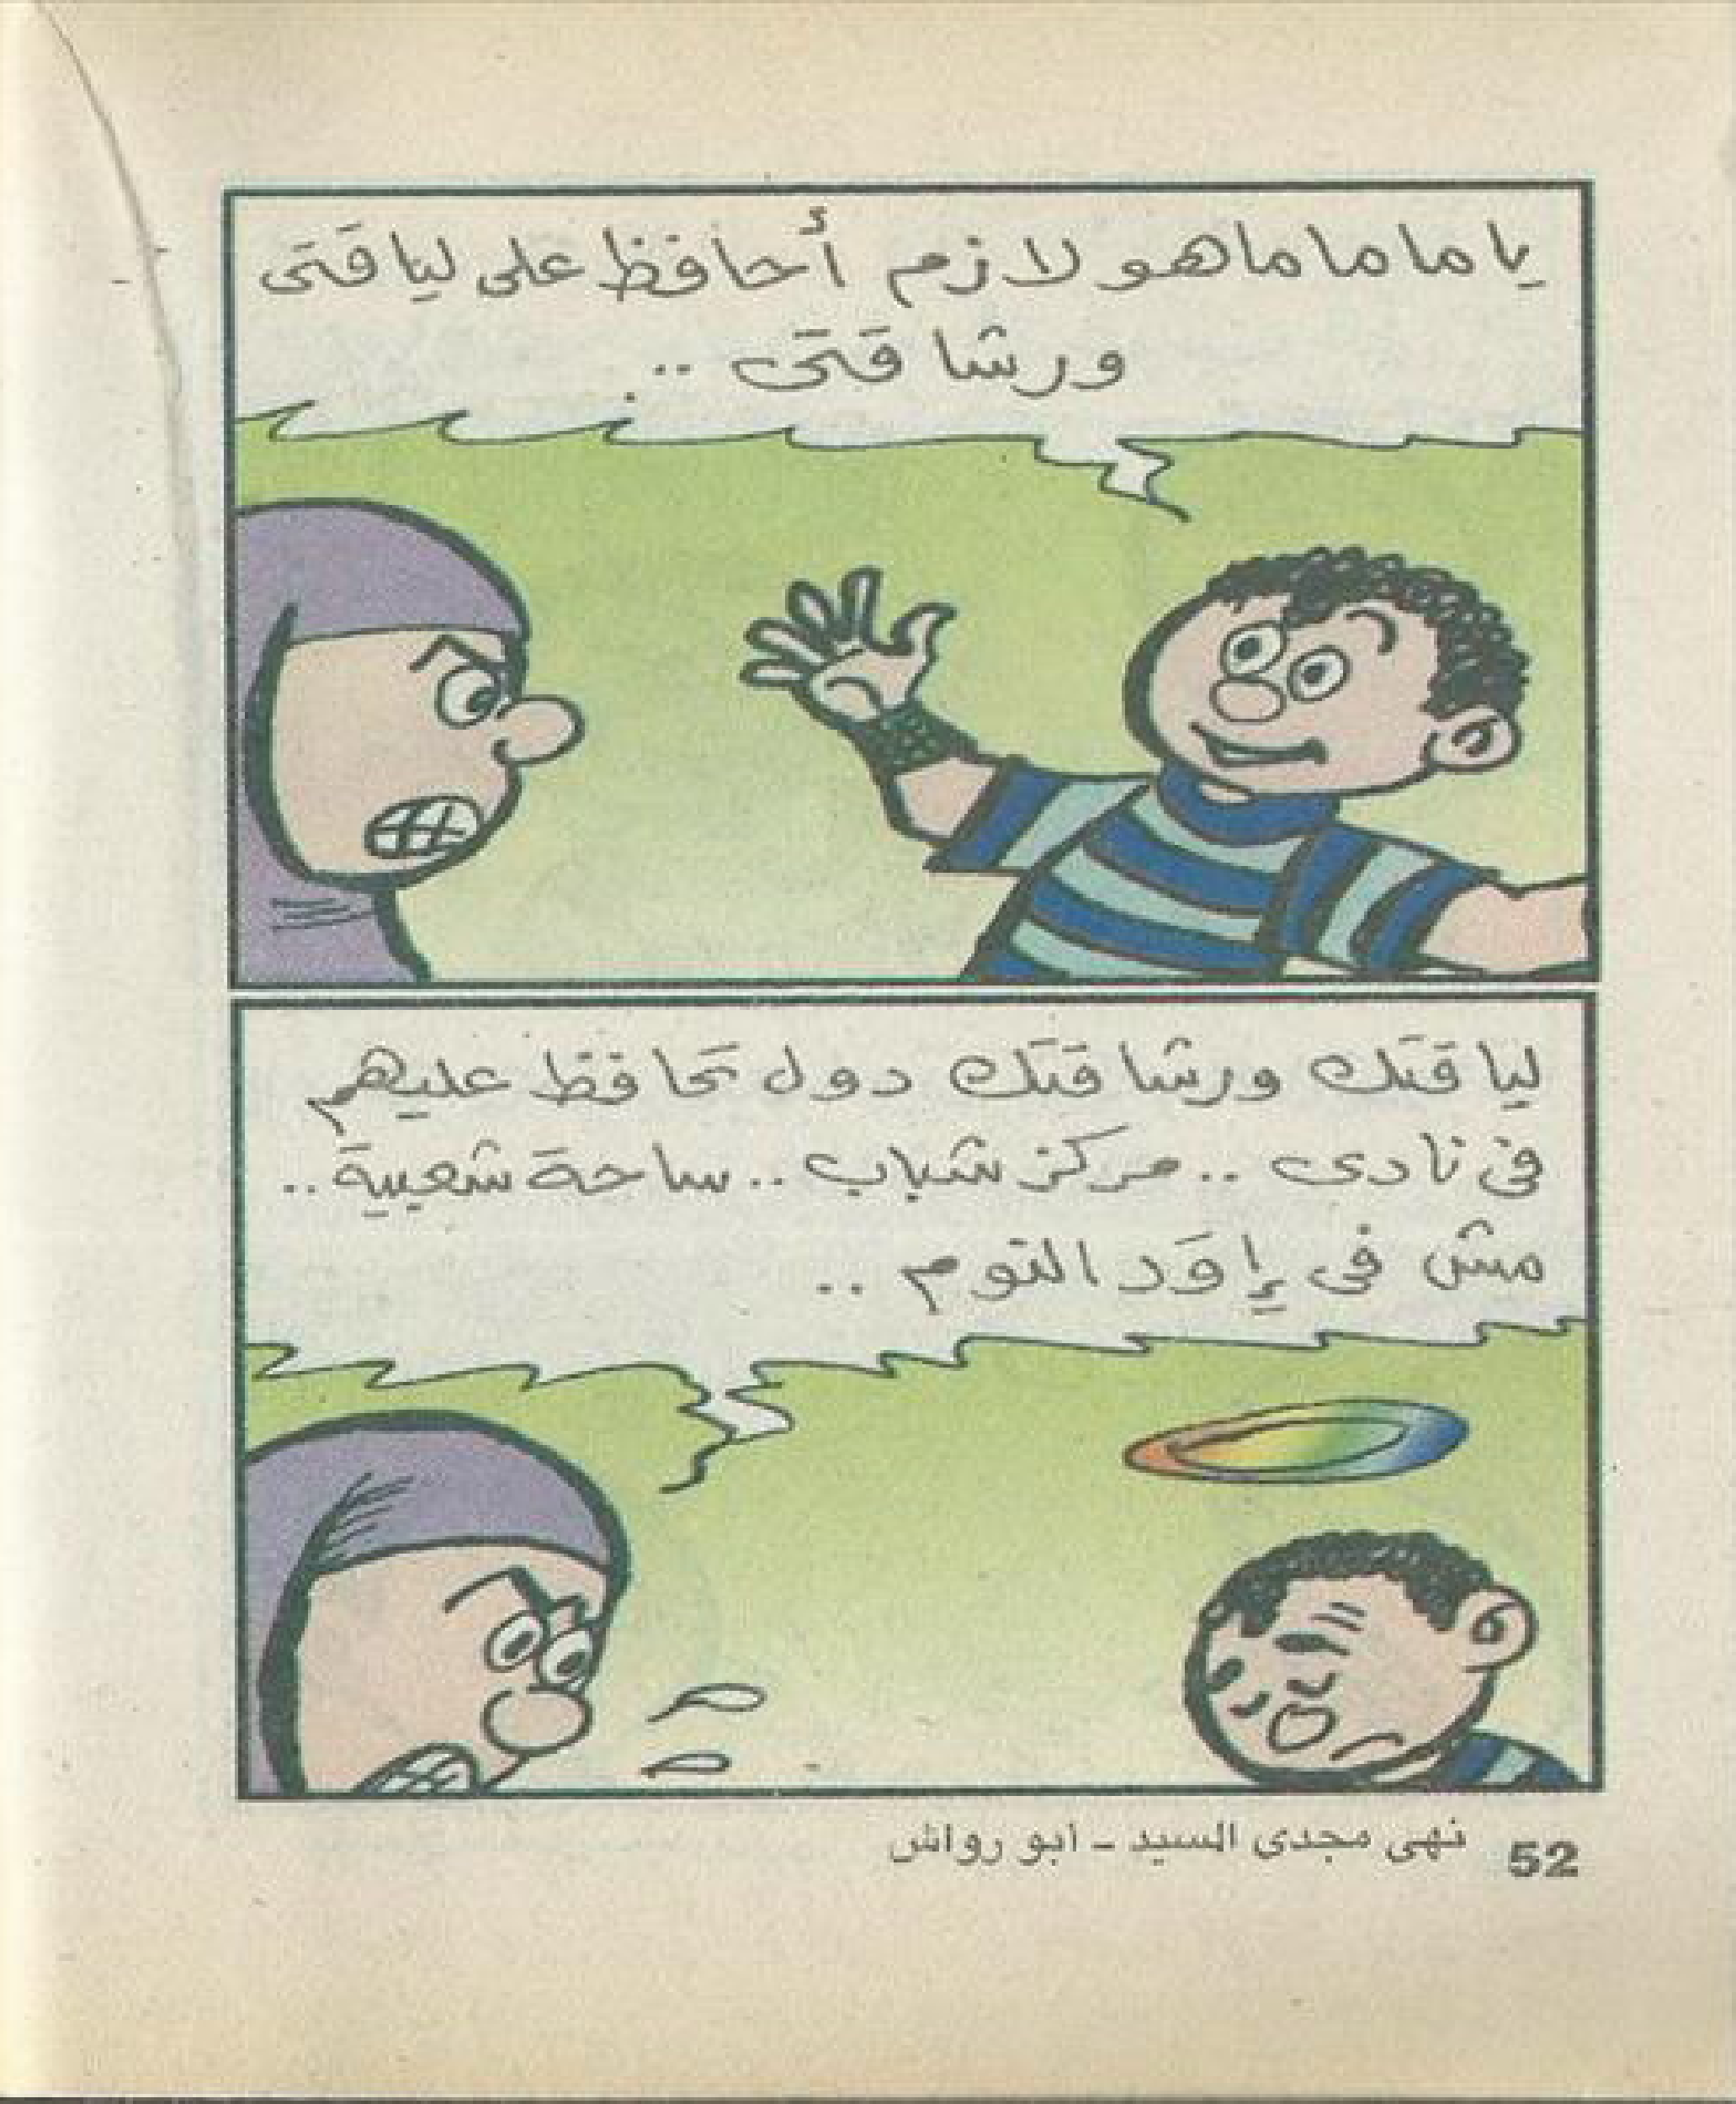 يا ماما ما هو لازم أحافظ على لياقتى
ورشاقتى ..
لياقتك ورشاقتك دول تحافظ عليهم
فى نادى .. مركز شباب .. ساحة شعبية ..
مش فى إوَد النوم ..
52 نهى مجدى السيد - أبو رواش